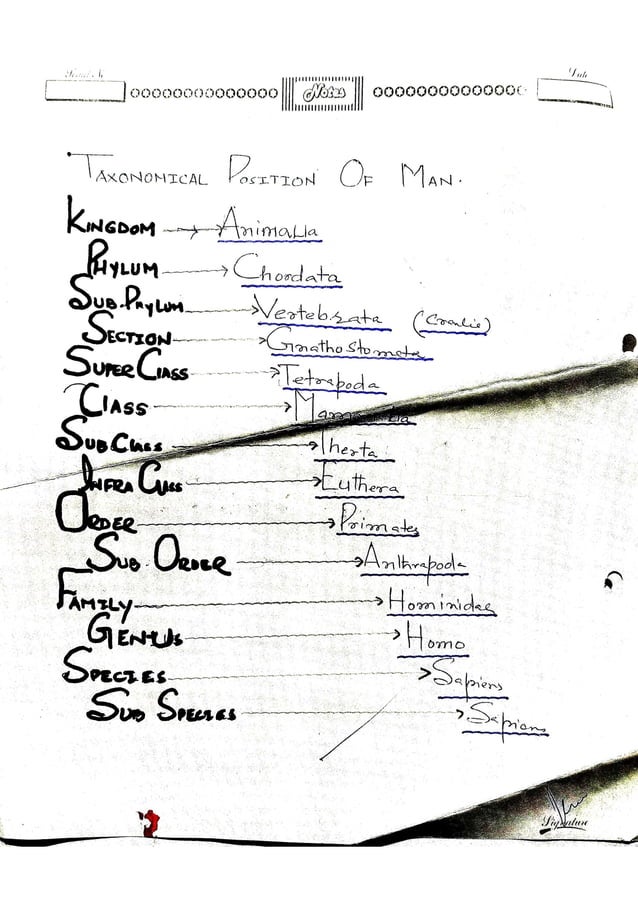 Notes
TAXONOMICAL POSITION OF MAN.
KINGDOM → AnimaLia
PHYLUM → Chordata
SUB.PHYLUM → Vertebrata
SECTION → Gnathostomata
SUPER CLASS → Tetrapoda
CLASS → Mammalia
SUB CLASS → Therta
INFRA CLASS → Euthera
ORDER → Primates
SUB ORDER → Anthrapoda
FAMILY → Hominidae
GENIUS → Homo
SPECIES → Sapiens
SUB SPECIES → Sapians
Signature